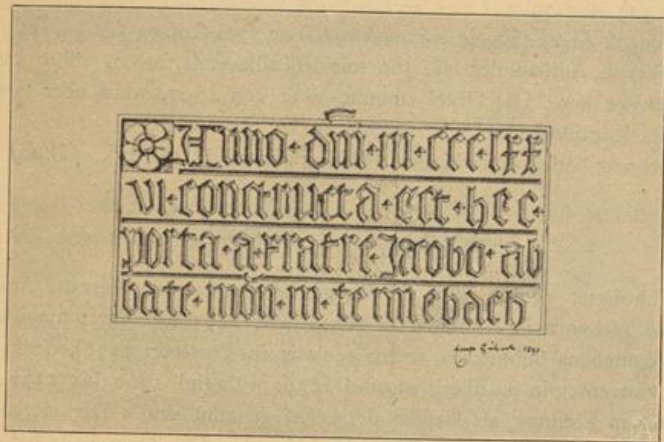 Anno·dn̄i·m·ccc·lxx
vi·constructa·est·hec·
porta·a·fratre·Jacobo·ab
bate·mōn·in·tennebach